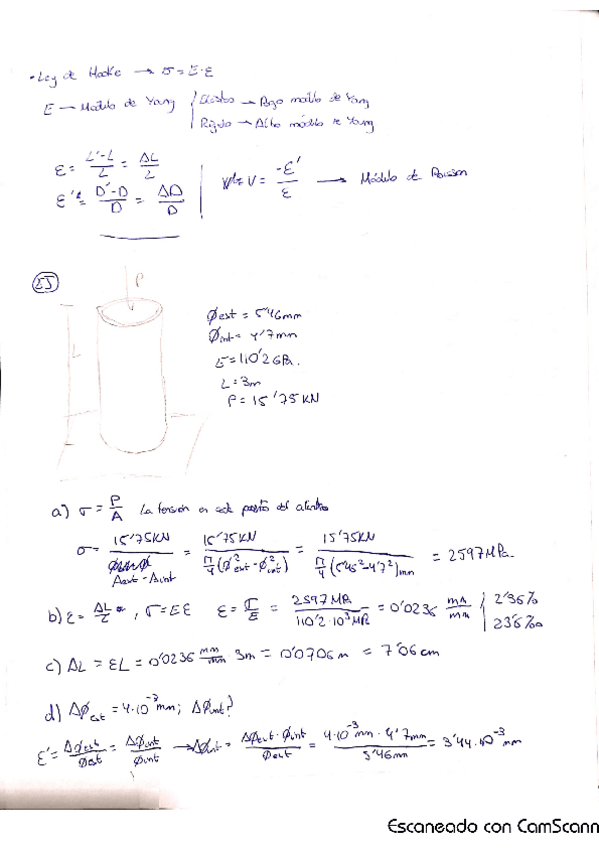 • Ley de Hooke → σ = E·ε
E → Módulo de Young
Elástico → Bajo módulo de Young
Rígido → Alto módulo de Young
ε = (L'-L)/L = ΔL/L
ε' = (D'-D)/D = ΔD/D
ν = -ε'/ε → Módulo de Poisson
25
P
L
Øext = 5'46mm
Øint = 4'7mm
E = 110'2 GPa.
L = 3m
P = 15'75 KN
a) σ = P/A La tensión en cada punto del cilindro
σ = 15'75KN/(Aext - Aint) = 15'75KN/(π/4 (Ø²ext - Ø²int)) = 15'75KN/(π/4 (5'46²-4'7²)mm) = 2597 MPa.
b) ε = ΔL/L, σ = Eε ε = σ/E = 2597 MPa/110'2·10³ MPa = 0'0236 mm/mm
2'36%
23'6‰
c) ΔL = εL = 0'0236 mm/mm 3m = 0'0706m = 7'06cm
d) ΔØext = 4·10⁻³mm; ΔØint?
ε' = ΔØext/Øext = ΔØint/Øint → ΔØint = ΔØext·Øint/Øext = 4·10⁻³mm·4'7mm/5'46mm = 3'44·10⁻³mm
Escaneado con CamScann